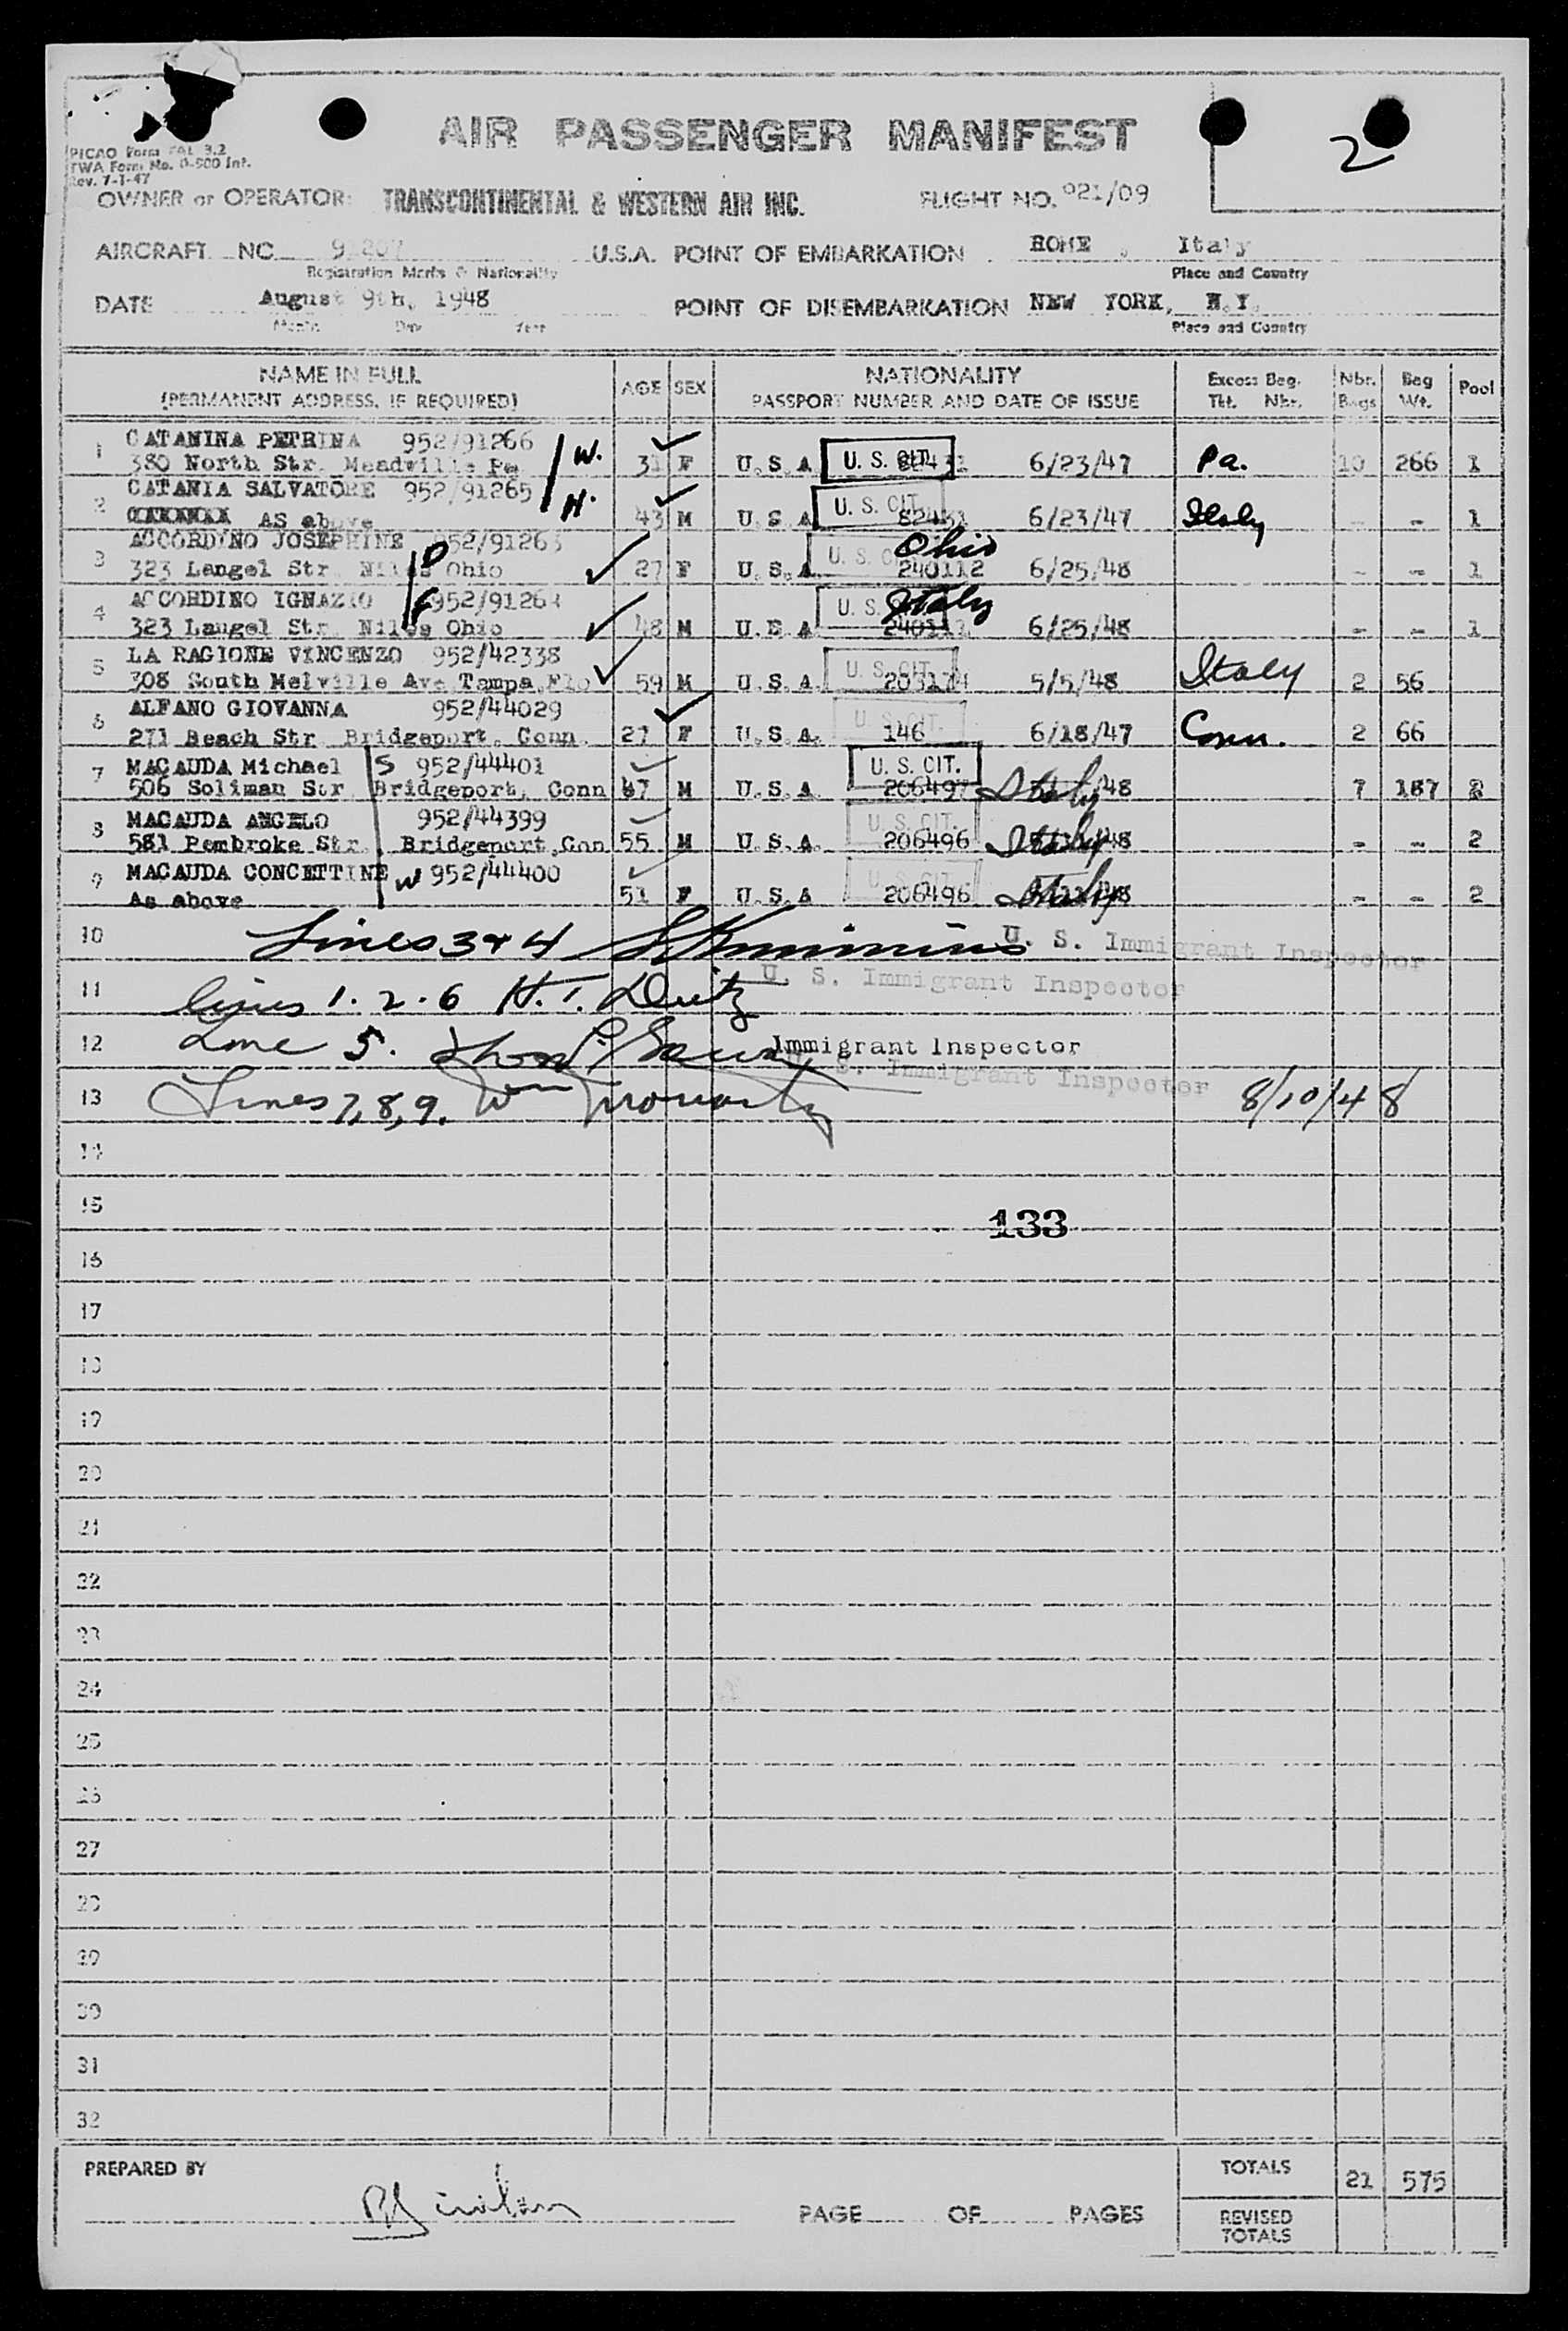 2
AIR PASSENGER MANIFEST
PICAO Form FAL 3.2
TWA Form No. O-500 Int.
Rev. 7-1-47
OWNER or OPERATOR: TRANSCONTINENTAL & WESTERN AIR INC. FLIGHT NO. 021/09
AIRCRAFT NC 91207 U.S.A. POINT OF EMBARKATION ROME , Italy
Registration Marks & Nationality Place and Country
DATE August 9th, 1948 POINT OF DISEMBARKATION NEW YORK, N.Y.
Month Day Year Place and Country
NAME IN FULL AGE SEX NATIONALITY Excess Bag. Nbr. Bag Pool
(PERMANENT ADDRESS, IF REQUIRED) PASSPORT NUMBER AND DATE OF ISSUE Tkt. Nbr. Bags Wt.
1 CATANINA PETRINA 952/91266 W.
380 North Str. Meadville Pa 31 F U.S.A U. S. CIT. 82431 6/23/47 Pa. 10 266 1
2 CATANIA SALVATORE 952/91265 H.
AS above 43 M U S A U. S. CIT. 82431 6/23/47 Italy - - 1
3 ACCORDINO JOSEPHINE 952/91263 D
323 Langel Str. Niles Ohio 27 F U.S.A U. S. CIT. Ohio 240112 6/25/48 - - 1
4 ACCORDINO IGNAZIO F 952/91264
323 Langel Str. Niles Ohio 48 M U.S A U. S. CIT. Italy 240111 6/25/48 - - 1
5 LA RAGIONE VINCENZO 952/42338
308 South Melville Ave Tampa Flo 59 M U.S.A U. S. CIT. 203174 5/5/48 Italy 2 56
6 ALFANO GIOVANNA 952/44029
271 Beach Str Bridgeport, Conn. 27 F U.S.A. U. S. CIT. 146 6/18/47 Conn. 2 66
7 MACAUDA Michael S 952/44401
506 Soliman Str Bridgeport, Conn 47 M U.S.A U. S. CIT. 206497 Italy /48 7 187 2
8 MACAUDA ANGELO 952/44399
581 Pembroke Str. Bridgeport,Con 55 M U.S.A. U. S. CIT. 206496 Italy 48 - - 2
9 MACAUDA CONCETTINE W 952/44400
As above 51 F U.S.A U. S. CIT. 206496 Italy 48 - - 2
10 Lines 3 & 4 U. S. Immigrant Inspector
11 lines 1. 2. 6 H. T. Deitz U. S. Immigrant Inspector
12 Line 5. Immigrant Inspector
U. S. Immigrant Inspector
13 Lines 7, 8, 9. Wm Moriarty 8/10/48
14
15
133
16
17
18
19
20
21
22
23
24
25
26
27
28
29
30
31
32
PREPARED BY TOTALS 21 575
PAGE OF PAGES REVISED
TOTALS